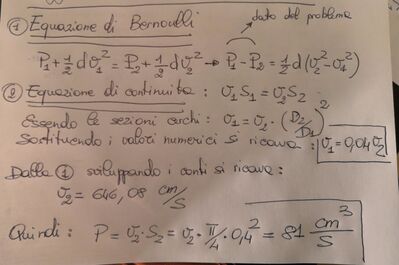 dato del problema
① Equazione di Bernoulli
P₁ + 1/2 d v₁² = P₂ + 1/2 d v₂² → P₁ - P₂ = 1/2 d (v₂² - v₁²)
② Equazione di continuità : v₁ S₁ = v₂ S₂
Essendo le sezioni cerchi : v₁ = v₂ · (D₂/D₁)²
Sostituendo i valori numerici si ricava : v₁ = 0,04 v₂
Dalla ① sviluppando i conti si ricava :
v₂ = 646,08 cm/s
Quindi : P = v₂ · S₂ = v₂ · π/4 · 0,4² = 81 cm³/s